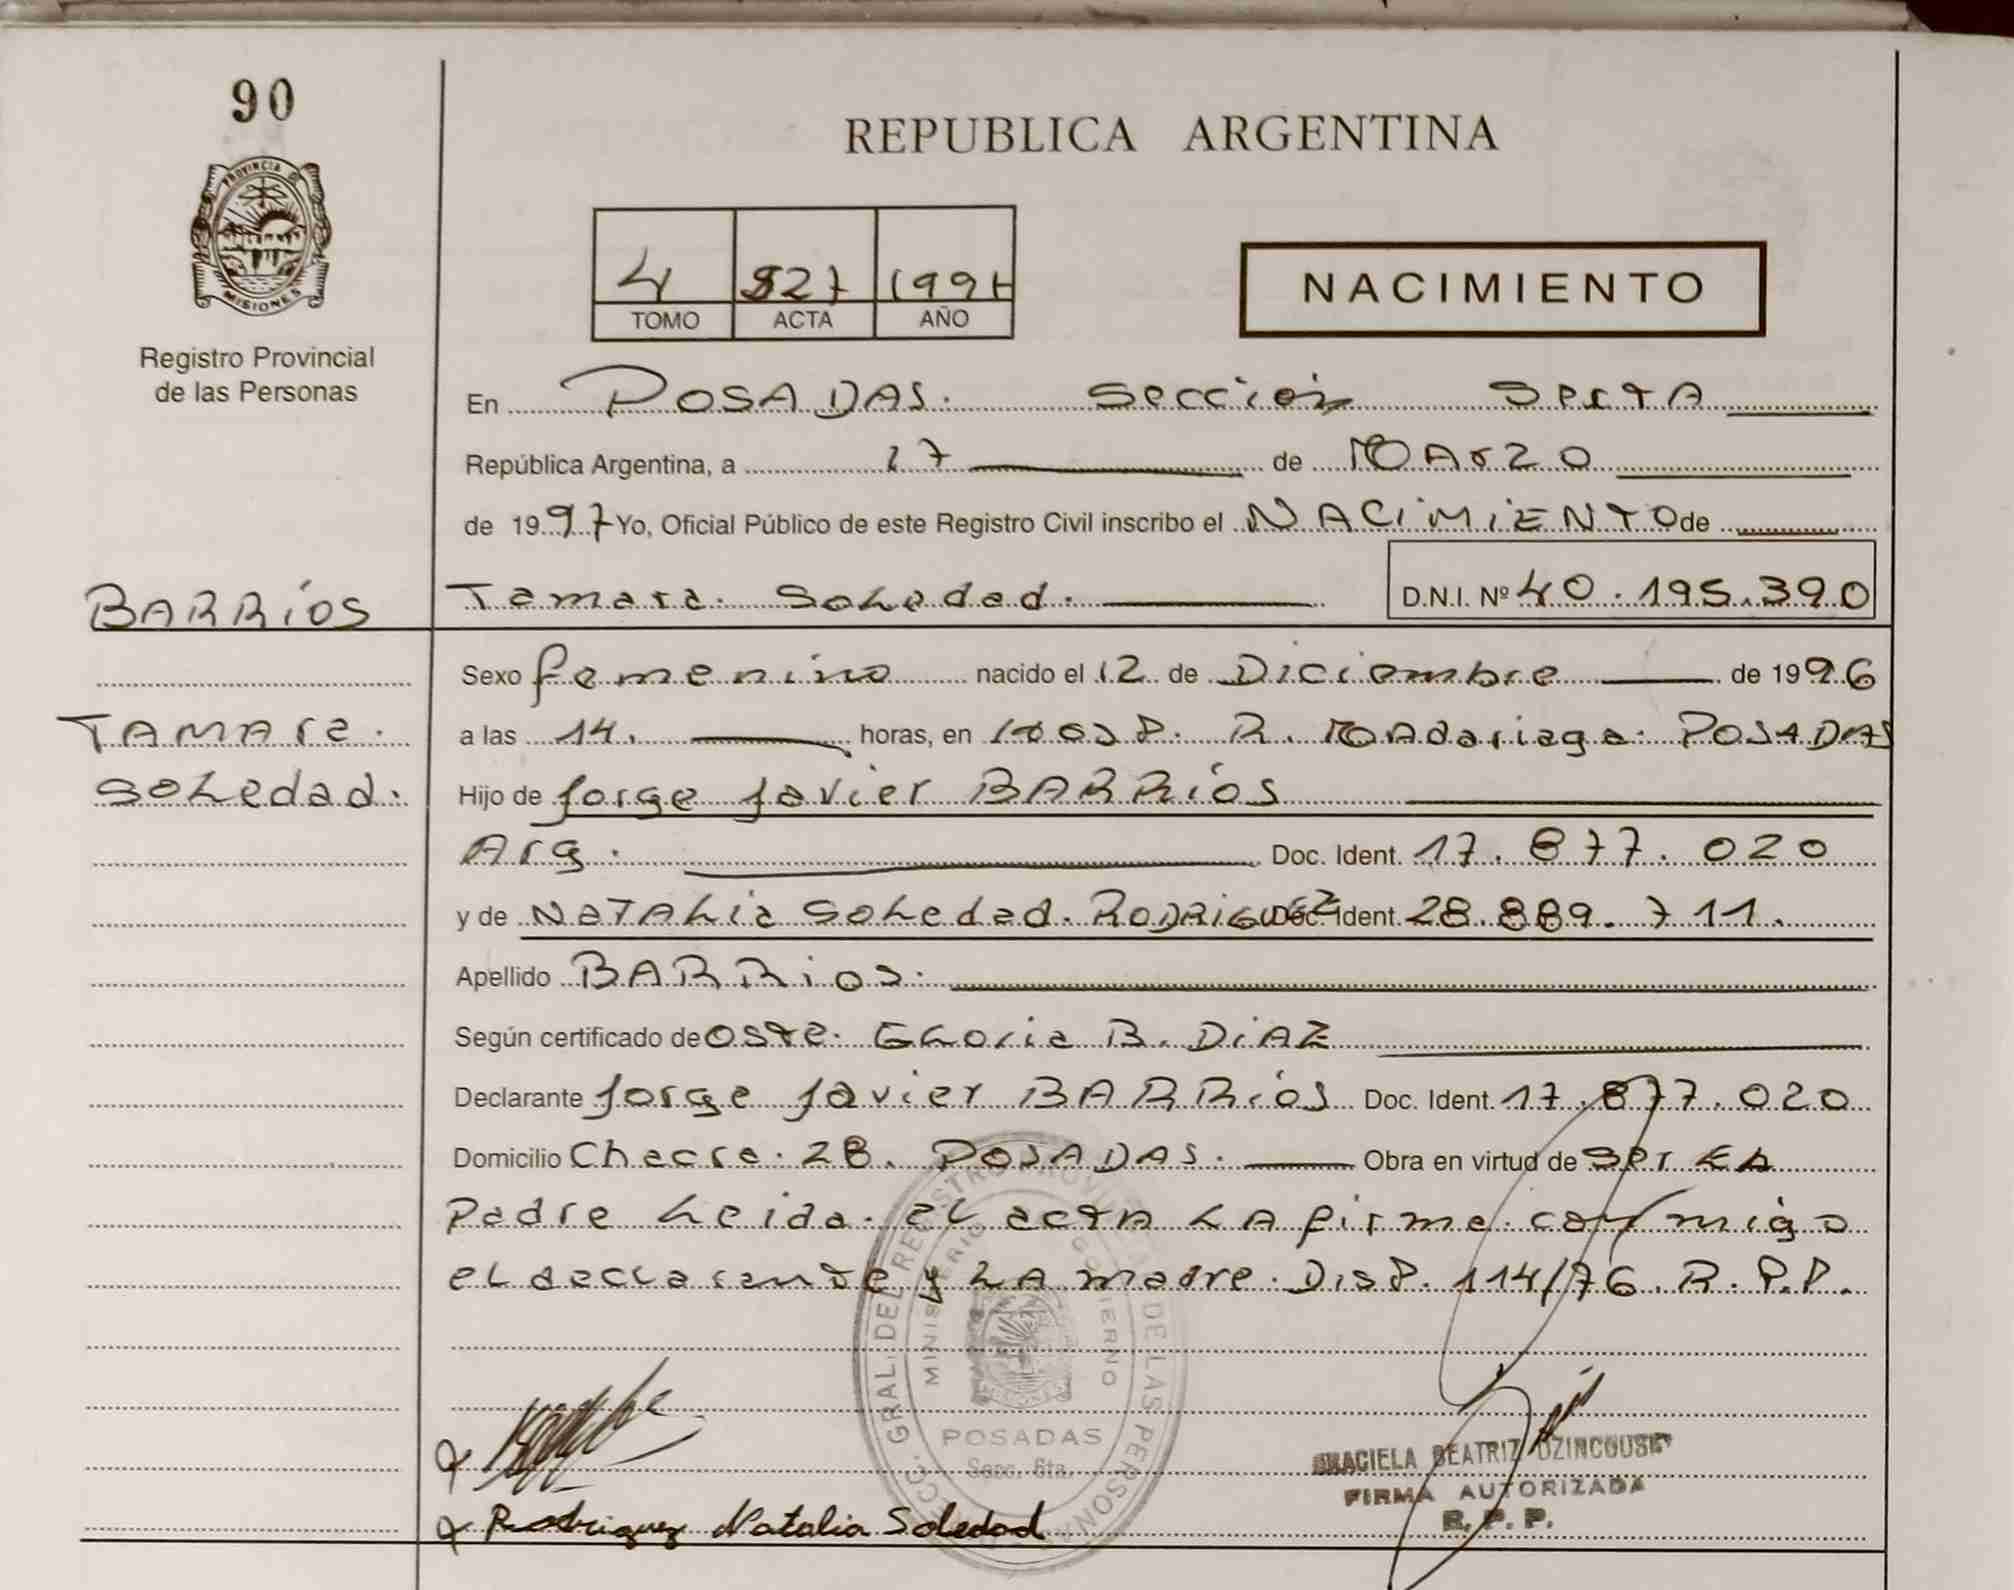 90
REPUBLICA ARGENTINA
PROVINCIA DE
MISIONES
4 827 1997
TOMO ACTA AÑO
NACIMIENTO
Registro Provincial
de las Personas
En POSADAS. sección sexta
República Argentina, a 17 de MArzo
de 1997 Yo, Oficial Público de este Registro Civil inscribo el NACIMIENTO de
BARRIOS Tamara. Soledad. D.N.I. Nº 40.195.390
Sexo femenino nacido el 12 de Diciembre de 1996
TAMAra. a las 14. horas, en HOSP. R. MAdariaga. POSADAS
Soledad. Hijo de Jorge Javier BARRIOS
Arg. Doc. Ident. 17.877.020
y de NATALia Soledad. RODRIGUEZ Doc. Ident. 28.889.711.
Apellido BARRIOS.
Según certificado de Oste. GLoria B. DIAZ
Declarante Jorge Javier BARRIOS Doc. Ident. 17.877.020
Domicilio Chacra. 28. POSADAS. Obra en virtud de ser EL
Padre Leida. el acta LA firma conmigo
el declarante y LA madre. DisP. 114/76. R.P.P.
GRAL. DEL REGISTRO PROVINCIAL DE LAS PERSONAS
MINISTERIO GOBIERNO
POSADAS
Secc. 6ta.
GRACIELA BEATRIZ
FIRMA AUTORIZADA
R. P. P.
Rodriguez Natalia Soledad